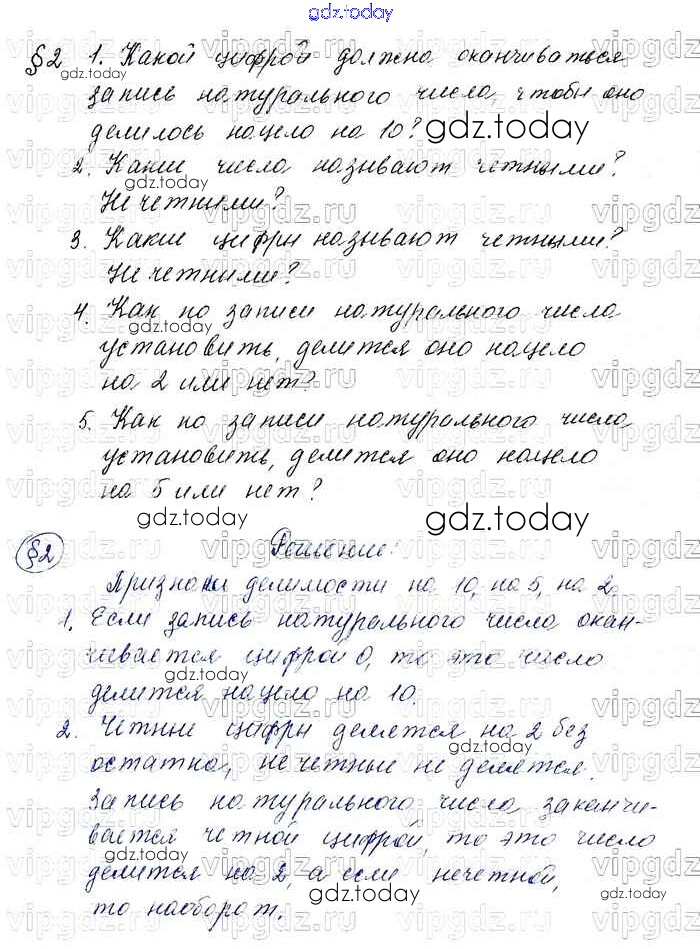 gdz.today
§2 1. Какой цифрой должна оканчиваться
запись натурального числа, чтобы оно
делилось нацело на 10?
2. Какие числа называют четными?
Нечетными?
3. Какие цифры называют четными?
Нечетными?
4. Как по записи натурального числа
установить, делится оно нацело
на 2 или нет?
5. Как по записи натурального числа
установить, делится оно нацело
на 5 или нет?
§2 Решение:
Признаки делимости на 10, на 5, на 2.
1. Если запись натурального числа окан-
чивается цифрой 0, то это число
делится нацело на 10.
2. Четные цифры делятся на 2 без
остатка, нечетные не делятся.
Запись натурального числа заканчи-
вается четной цифрой, то это число
делится на 2, а если нечетной,
то наоборот.